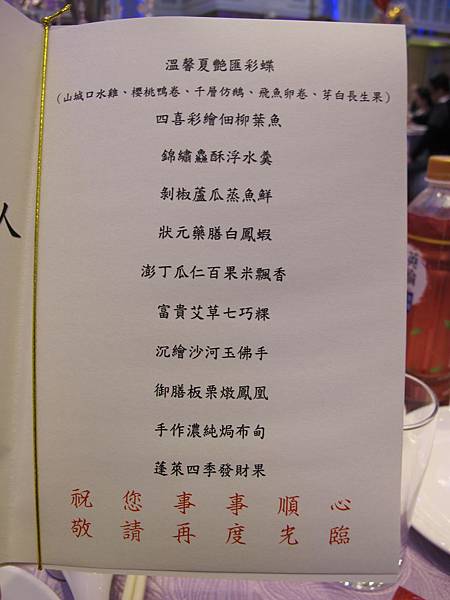 溫馨夏艷匯彩蝶
(山城口水雞、櫻桃鴨卷、千層仿鵝、飛魚卵卷、芽白長生果)
四喜彩繪佃柳葉魚
錦繡鱻酥浮水羹
剝椒蘆瓜蒸魚鮮
狀元藥膳白鳳蝦
澎丁瓜仁百果米飄香
富貴艾草七巧粿
沉繪沙河玉佛手
御膳板栗燉鳳凰
手作濃純焗布甸
蓬萊四季發財果
祝您事事順心
敬請再度光臨
人